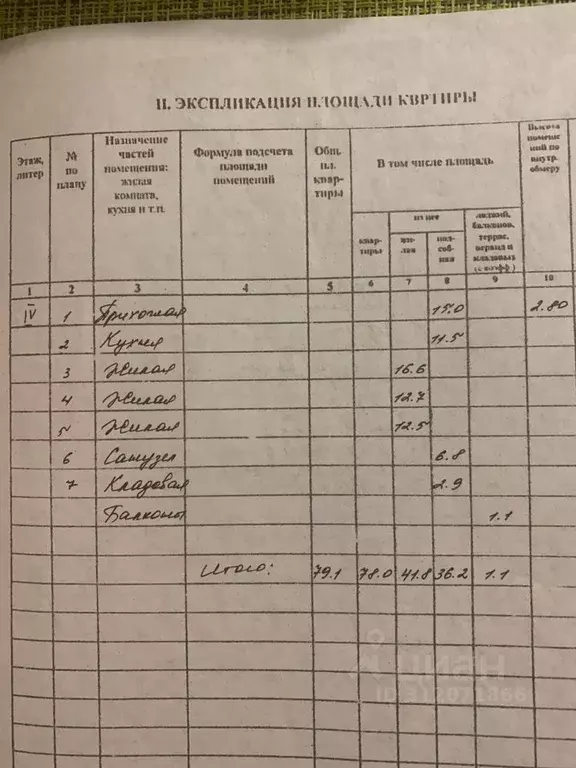 II. ЭКСПЛИКАЦИЯ ПЛОЩАДИ КВРТИРЫ
Этаж, литер
№ по плану
Назначение частей помещения: жилая комната, кухня и т.п.
Формула подсчета площади помещений
Общ. пл. квар- тиры
В том числе площадь
Высота помеще- ний по внутр. обмеру
квар- тиры
из нее
жи- лая
под- соб- ная
лоджий, балконов, террас, веранд и кладовых (с коэфф.)
1 2 3 4 5 6 7 8 9 10
IV 1 Прихожая 15.0 2.80
2 Кухня 11.5
3 Жилая 16.6
4 Жилая 12.7
5 Жилая 12.5
6 Санузел 6.8
7 Кладовая 2.9
Балконы 1.1
Итого: 79.1 78.0 41.8 36.2 1.1
циан